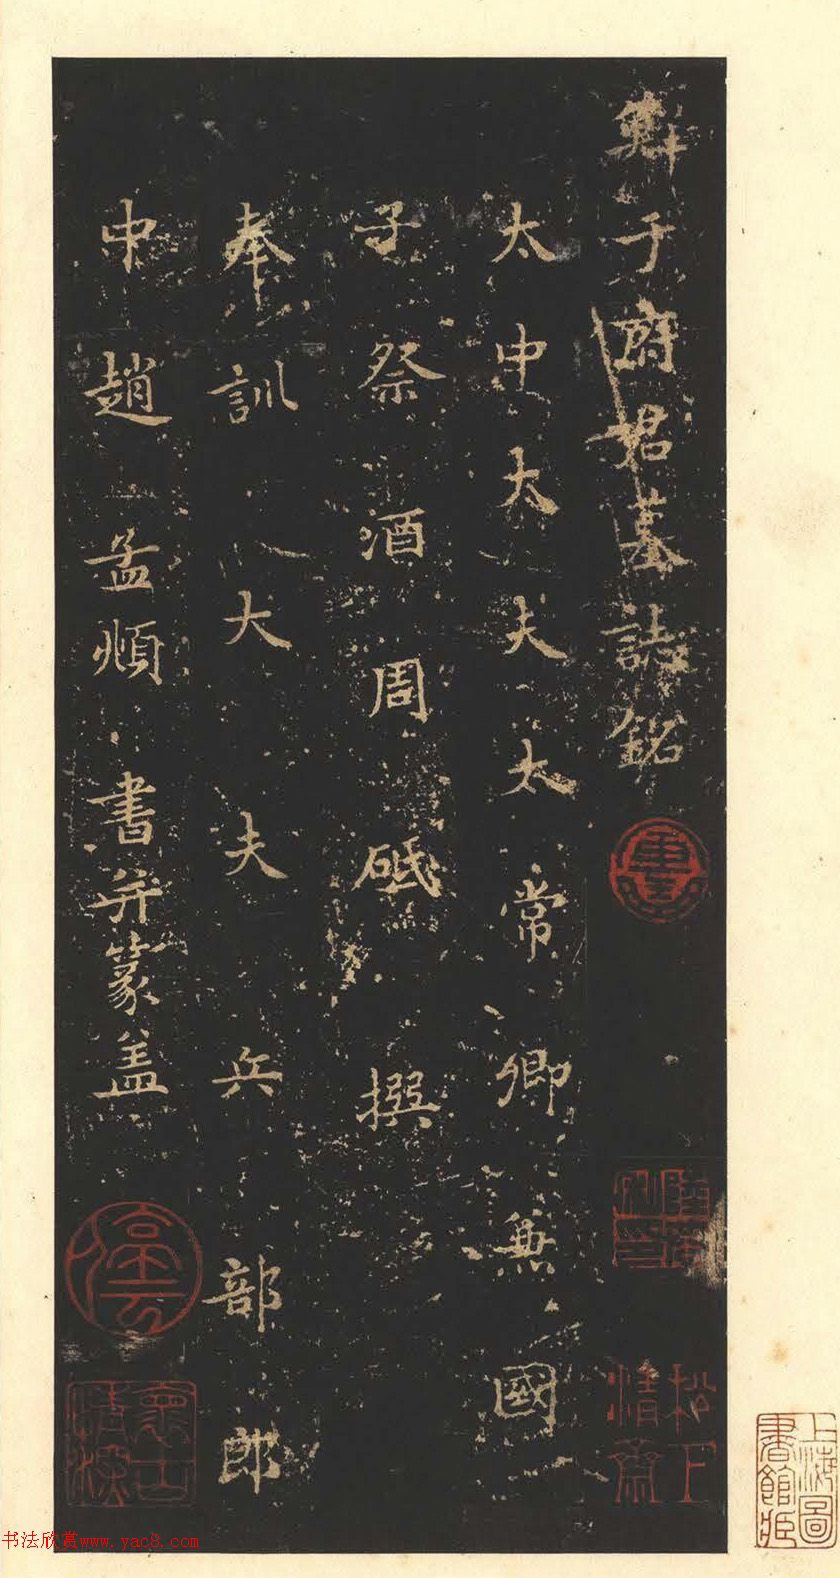 鮮于府君墓誌銘
太中大夫太常卿兼國
子祭酒周砥撰
奉訓大夫兵部郎
中趙孟頫書并篆盖
松下清齋
上海圖書館藏
书法欣赏www.yac8.com